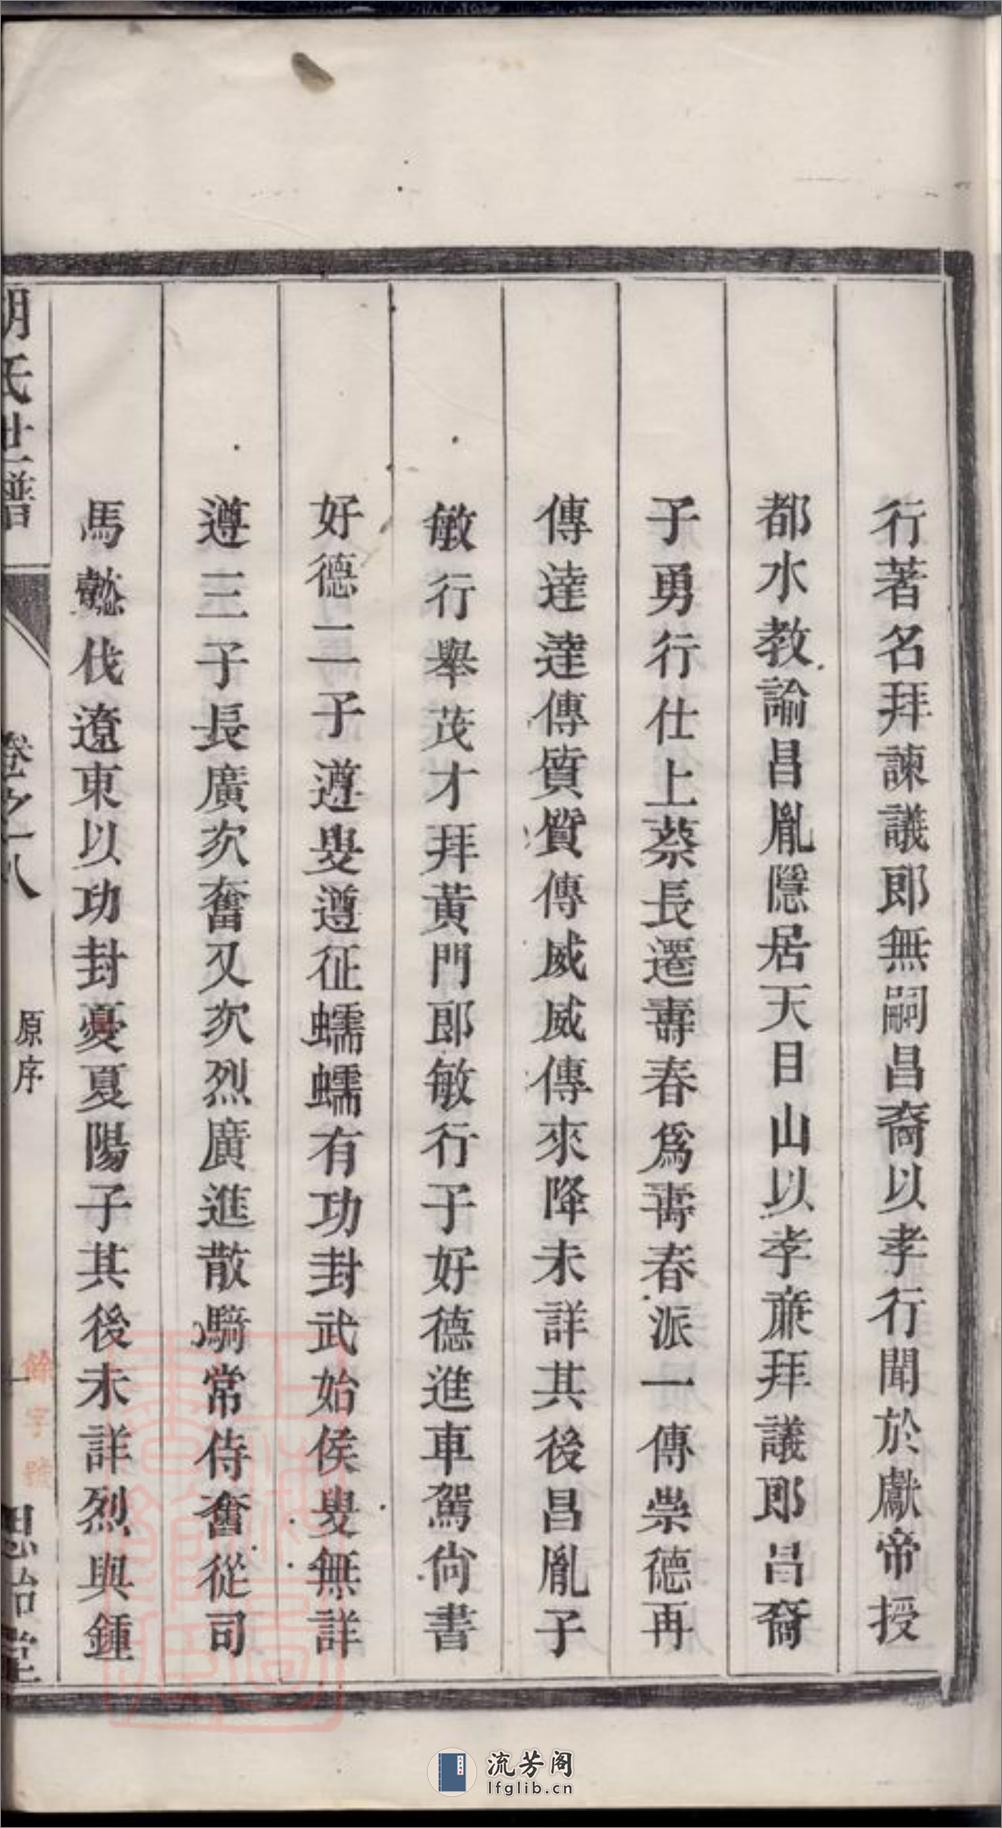 行著名拜諫議郎無嗣昌裔以孝行聞於獻帝授
都水教諭昌胤隱居天目山以孝亷拜議郎昌裔
子勇行仕上蔡長遷壽春爲壽春派一傳崇德再
傳達達傳質質傳威威傳來降未詳其後昌胤子
敏行舉茂才拜黃門郎敏行子好德進車駕尙書
好德二子遵叟遵征蠕蠕有功封武始侯叟無詳
遵三子長廣次奮又次烈廣進散騎常侍奮從司
馬懿伐遼東以功封憂夏陽子其後未詳烈與鍾
胡氏世譜
卷之八
原序
一
餘字號
思治堂
流芳阁
lfglib.cn